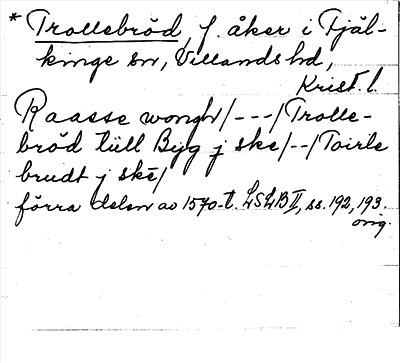 * Trollebröd, f. åker i Fjäl-
kinge sn, Villands hd,
Krist. l.
Raasse wongh/---/Trolle-
bröd tüll Byg j ske/--/Toirle
brudt j skē/
förra delen av 1570-t. LSLB II, ss. 192, 193.
orig.